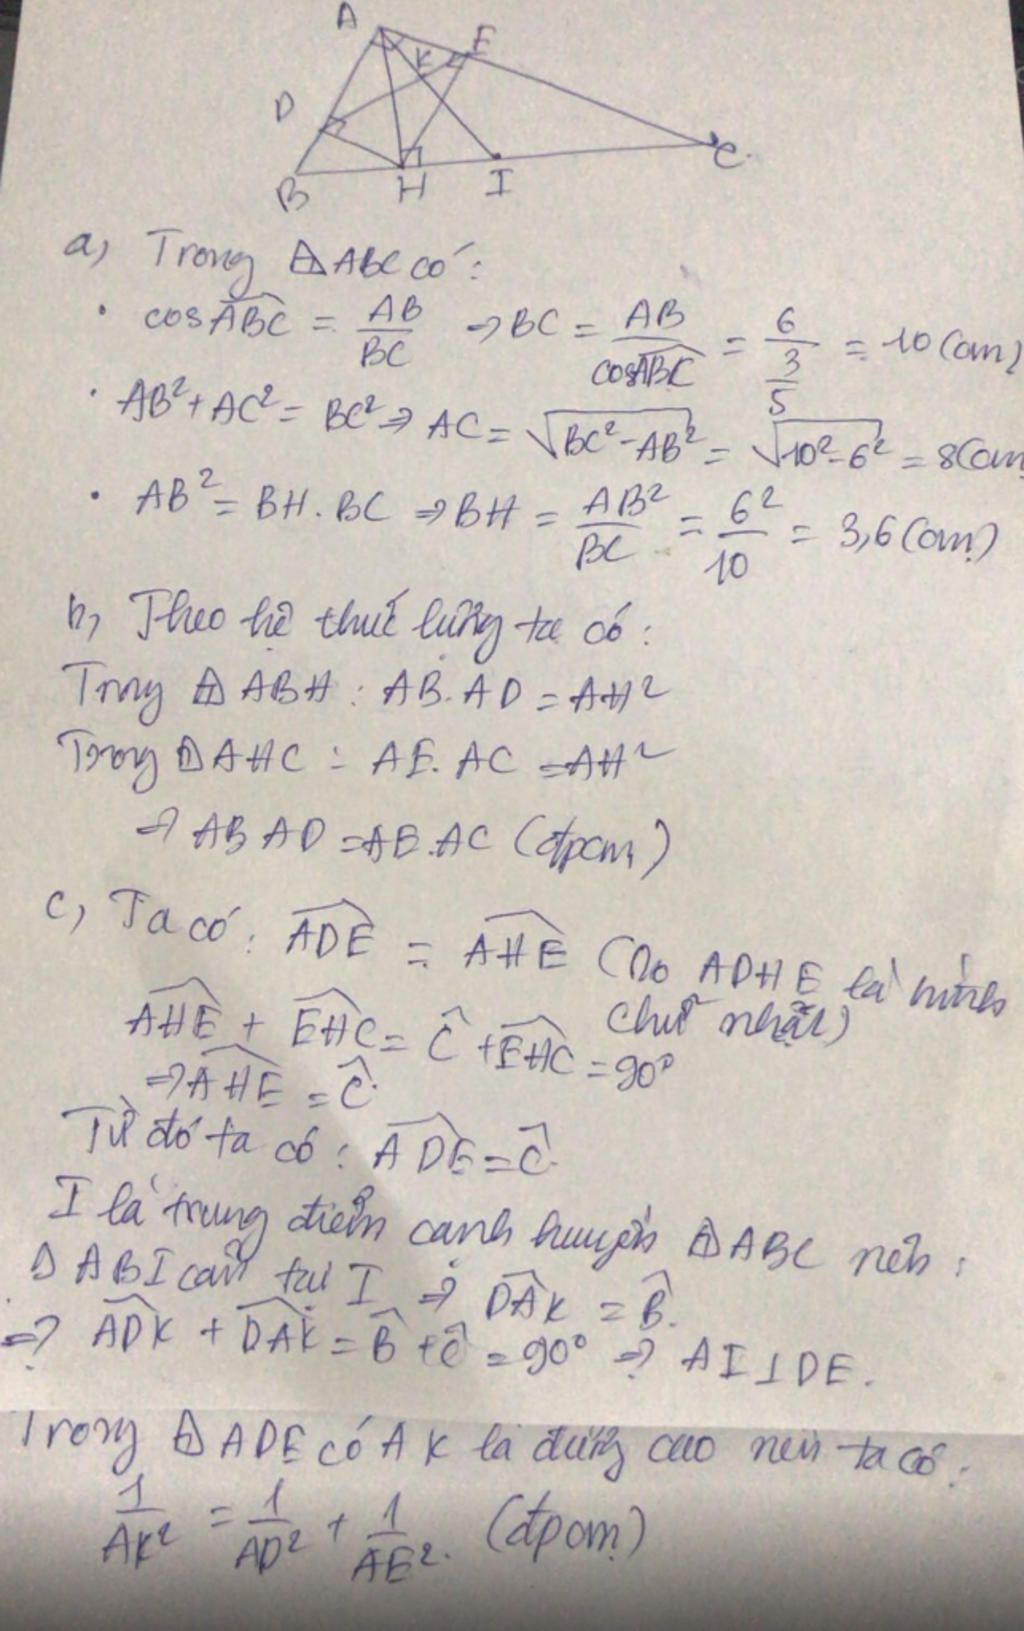 A
E
K
D
B
H
I
C
a) Trong ΔABC có:
• cos ABC = AB/BC ⇒ BC = AB/cosABC = 6/(3/5) = 10 (cm)
• AB² + AC² = BC² ⇒ AC = √(BC² - AB²) = √(10² - 6²) = 8 (cm
• AB² = BH . BC ⇒ BH = AB²/BC = 6²/10 = 3,6 (cm)
b, Theo hệ thức lượng ta có:
Trong Δ ABH : AB . AD = AH²
Trong Δ AHC : AE . AC = AH²
⇒ AB AD = AE . AC (đpcm)
c, Ta có: ADE = AHE (Do ADHE là hình
chữ nhật)
AHE + EHC = Ĉ + EHC = 90°
⇒ AHE = Ĉ.
Từ đó ta có: ADE = Ĉ.
I là trung điểm cạnh huyền Δ ABC nên:
Δ ABI cân tại I ⇒ DAK = B̂.
⇒ ADK + DAK = B̂ + Ĉ = 90° ⇒ AI ⊥ DE.
Trong Δ ADE có AK là đường cao nên ta có:
1/AK² = 1/AD² + 1/AE². (đpcm)